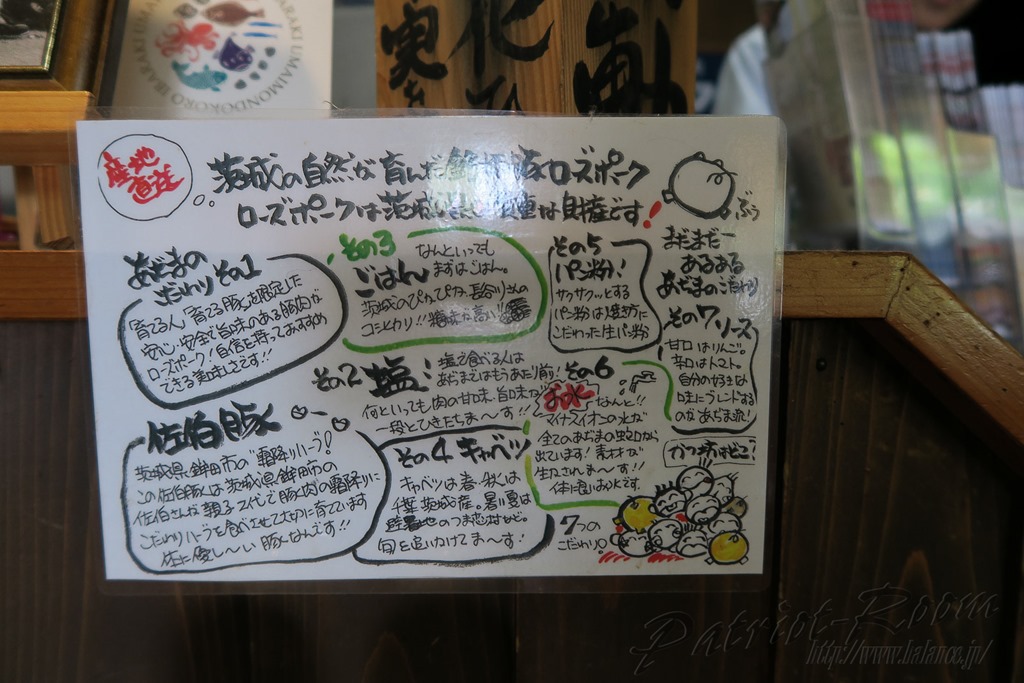 IBARAKI UMAIMONDOKORO
産地
直送
茨城の自然が育んだ銘柄豚ローズポーク
ローズポークは茨城の貴重な財産です!
ぶぅ
あぢまの
こだわり その1
育てる人、育てる豚を限定した
安心・安全で旨味のある豚肉が
ローズポーク!自信を持っておすすめ
できる美味しさです!!
その2 塩!
塩で食べる人は
あぢまではもうあたり前!
何といっても肉の甘味・旨味が
一段とひきたちま〜す!!
その3
ごはん
なんといっても
まずはごはん。
茨城のぴっかぴか、長谷川さんの
コシヒカリ!!
その4 キャベツ
キャベツは春・秋は
千葉、茨城産。暑い夏は
避暑地のつま恋村など。
旬を追いかけてま〜す!
その5
パン粉!
サクサクッとする
パン粉は焼き方に
こだわった生パン粉
その6
お水
なんと!!
マイナスイオンの水が
全てのあぢまの蛇口から
出ています!素材が
生かされま〜す!!
体に良いおひとです
まだまだー
あるある
あぢまのこだわり
その7 ソース
甘口はりんご。
辛口はトマト。
自分の好きな
味にブレンドする
のがあぢま流!
かつ坊はどこ?
7つの
こだわり
佐伯豚
茨城県・鉾田市の“霜降りハーブ”
この佐伯豚は茨城県鉾田市の
佐伯さんが親子2代で豚肉の霜降りに
こだわりハーブを食べさせて大切に育てています
体に優し〜い豚なんです!!
Patriot-Room
http://www.balance.jp/